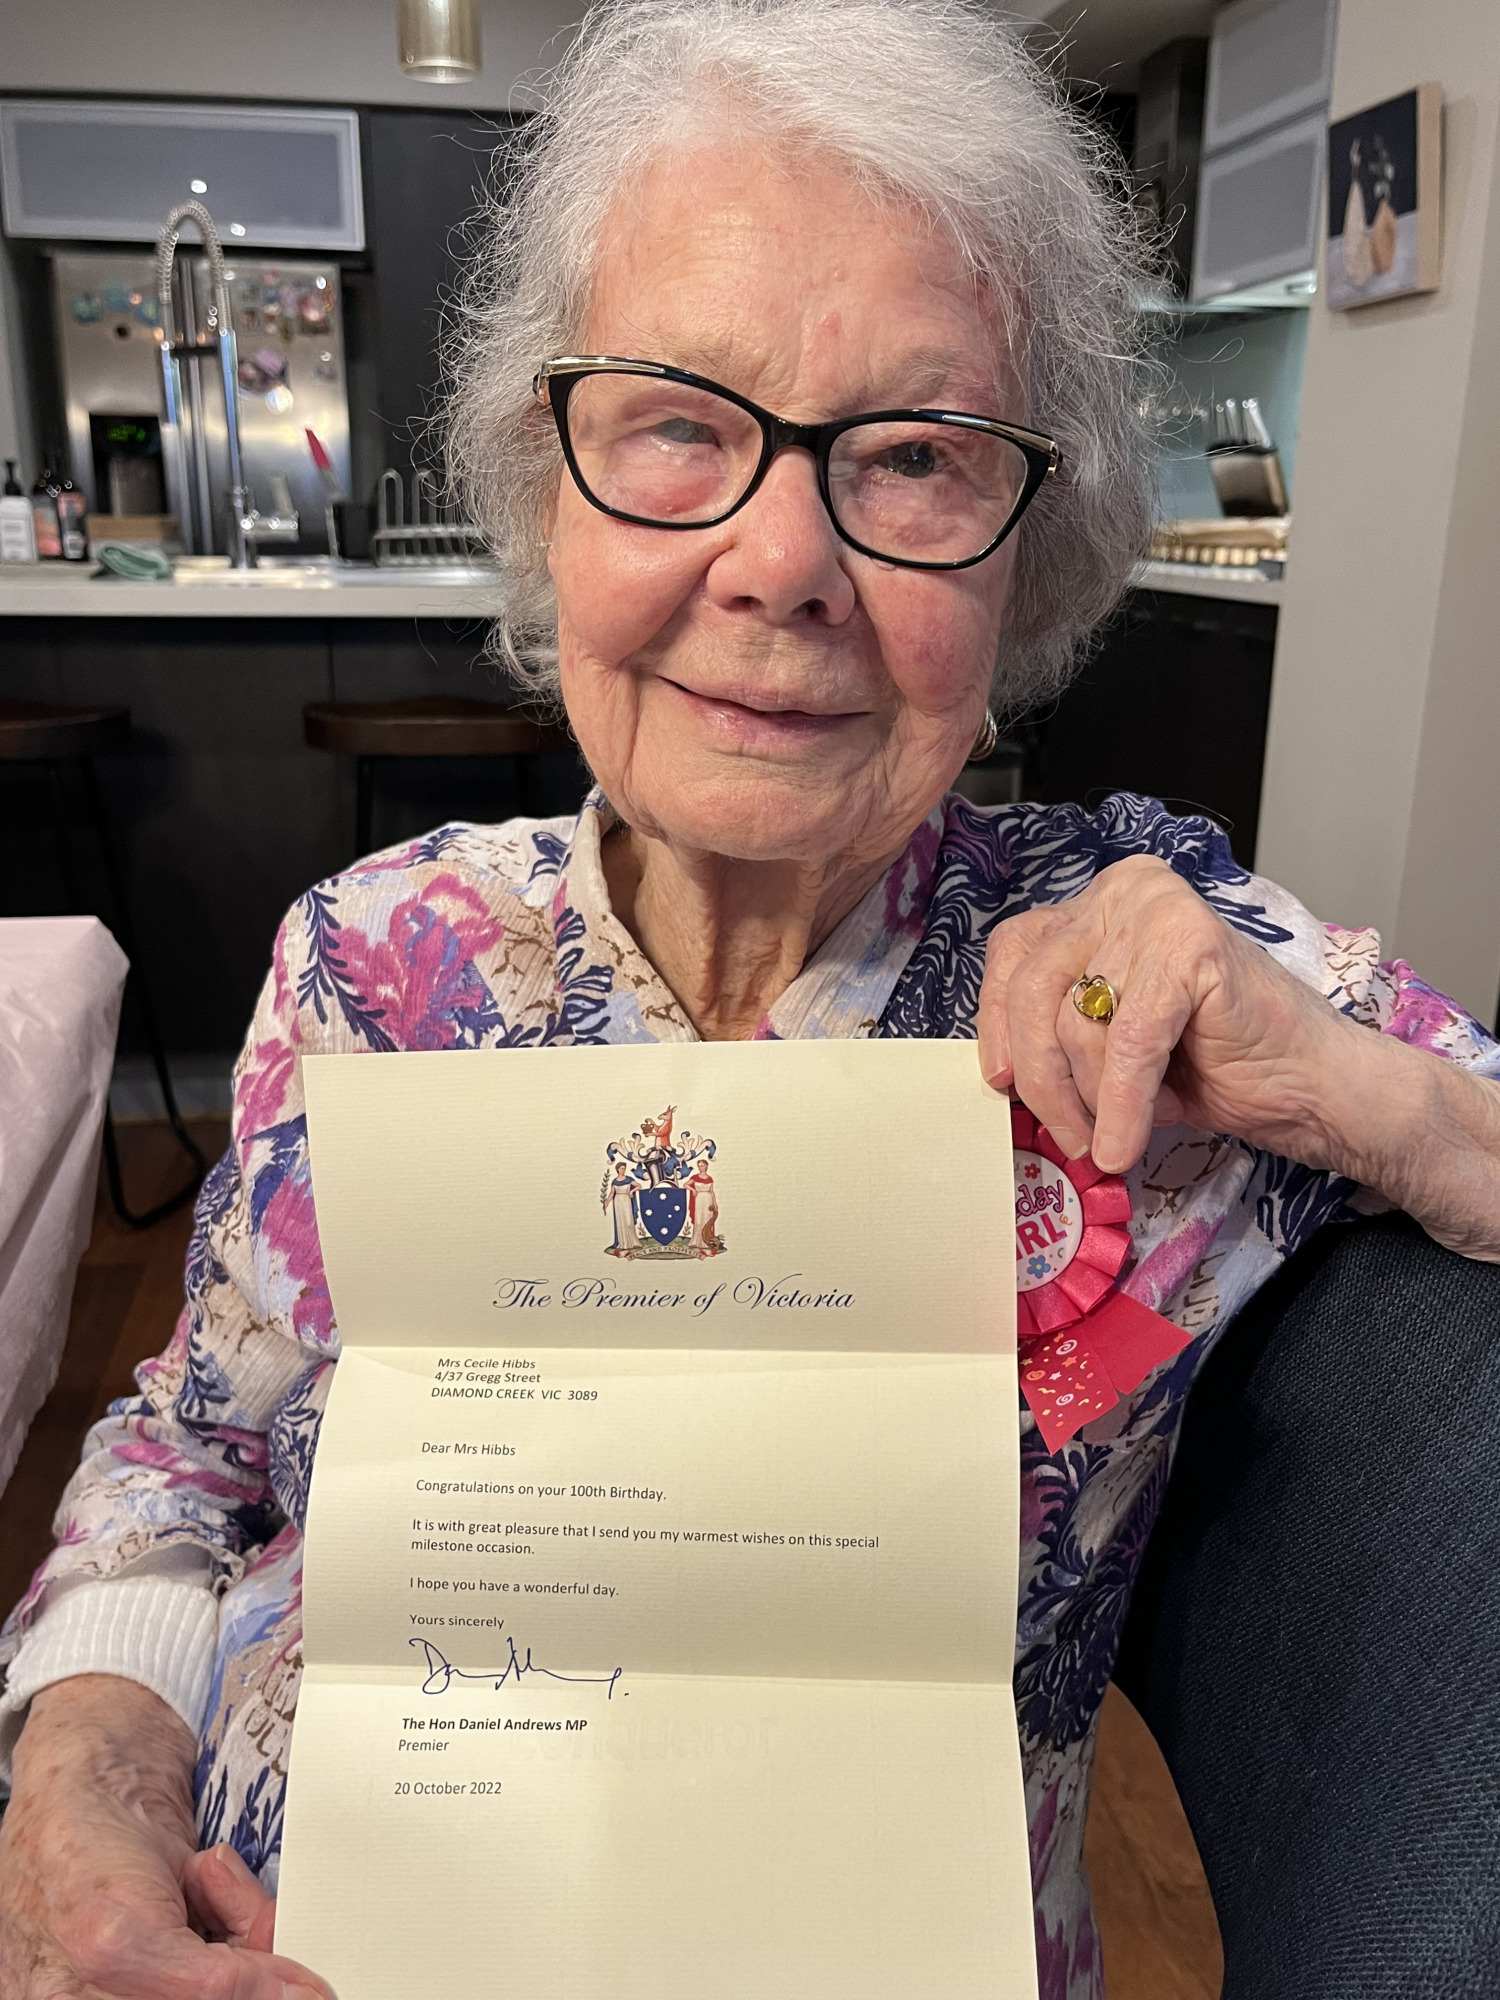 The Premier of Victoria
Mrs Cecile Hibbs
4/37 Gregg Street
DIAMOND CREEK VIC 3089
Dear Mrs Hibbs
Congratulations on your 100th Birthday.
It is with great pleasure that I send you my warmest wishes on this special
milestone occasion.
I hope you have a wonderful day.
Yours sincerely
The Hon Daniel Andrews MP
Premier
20 October 2022